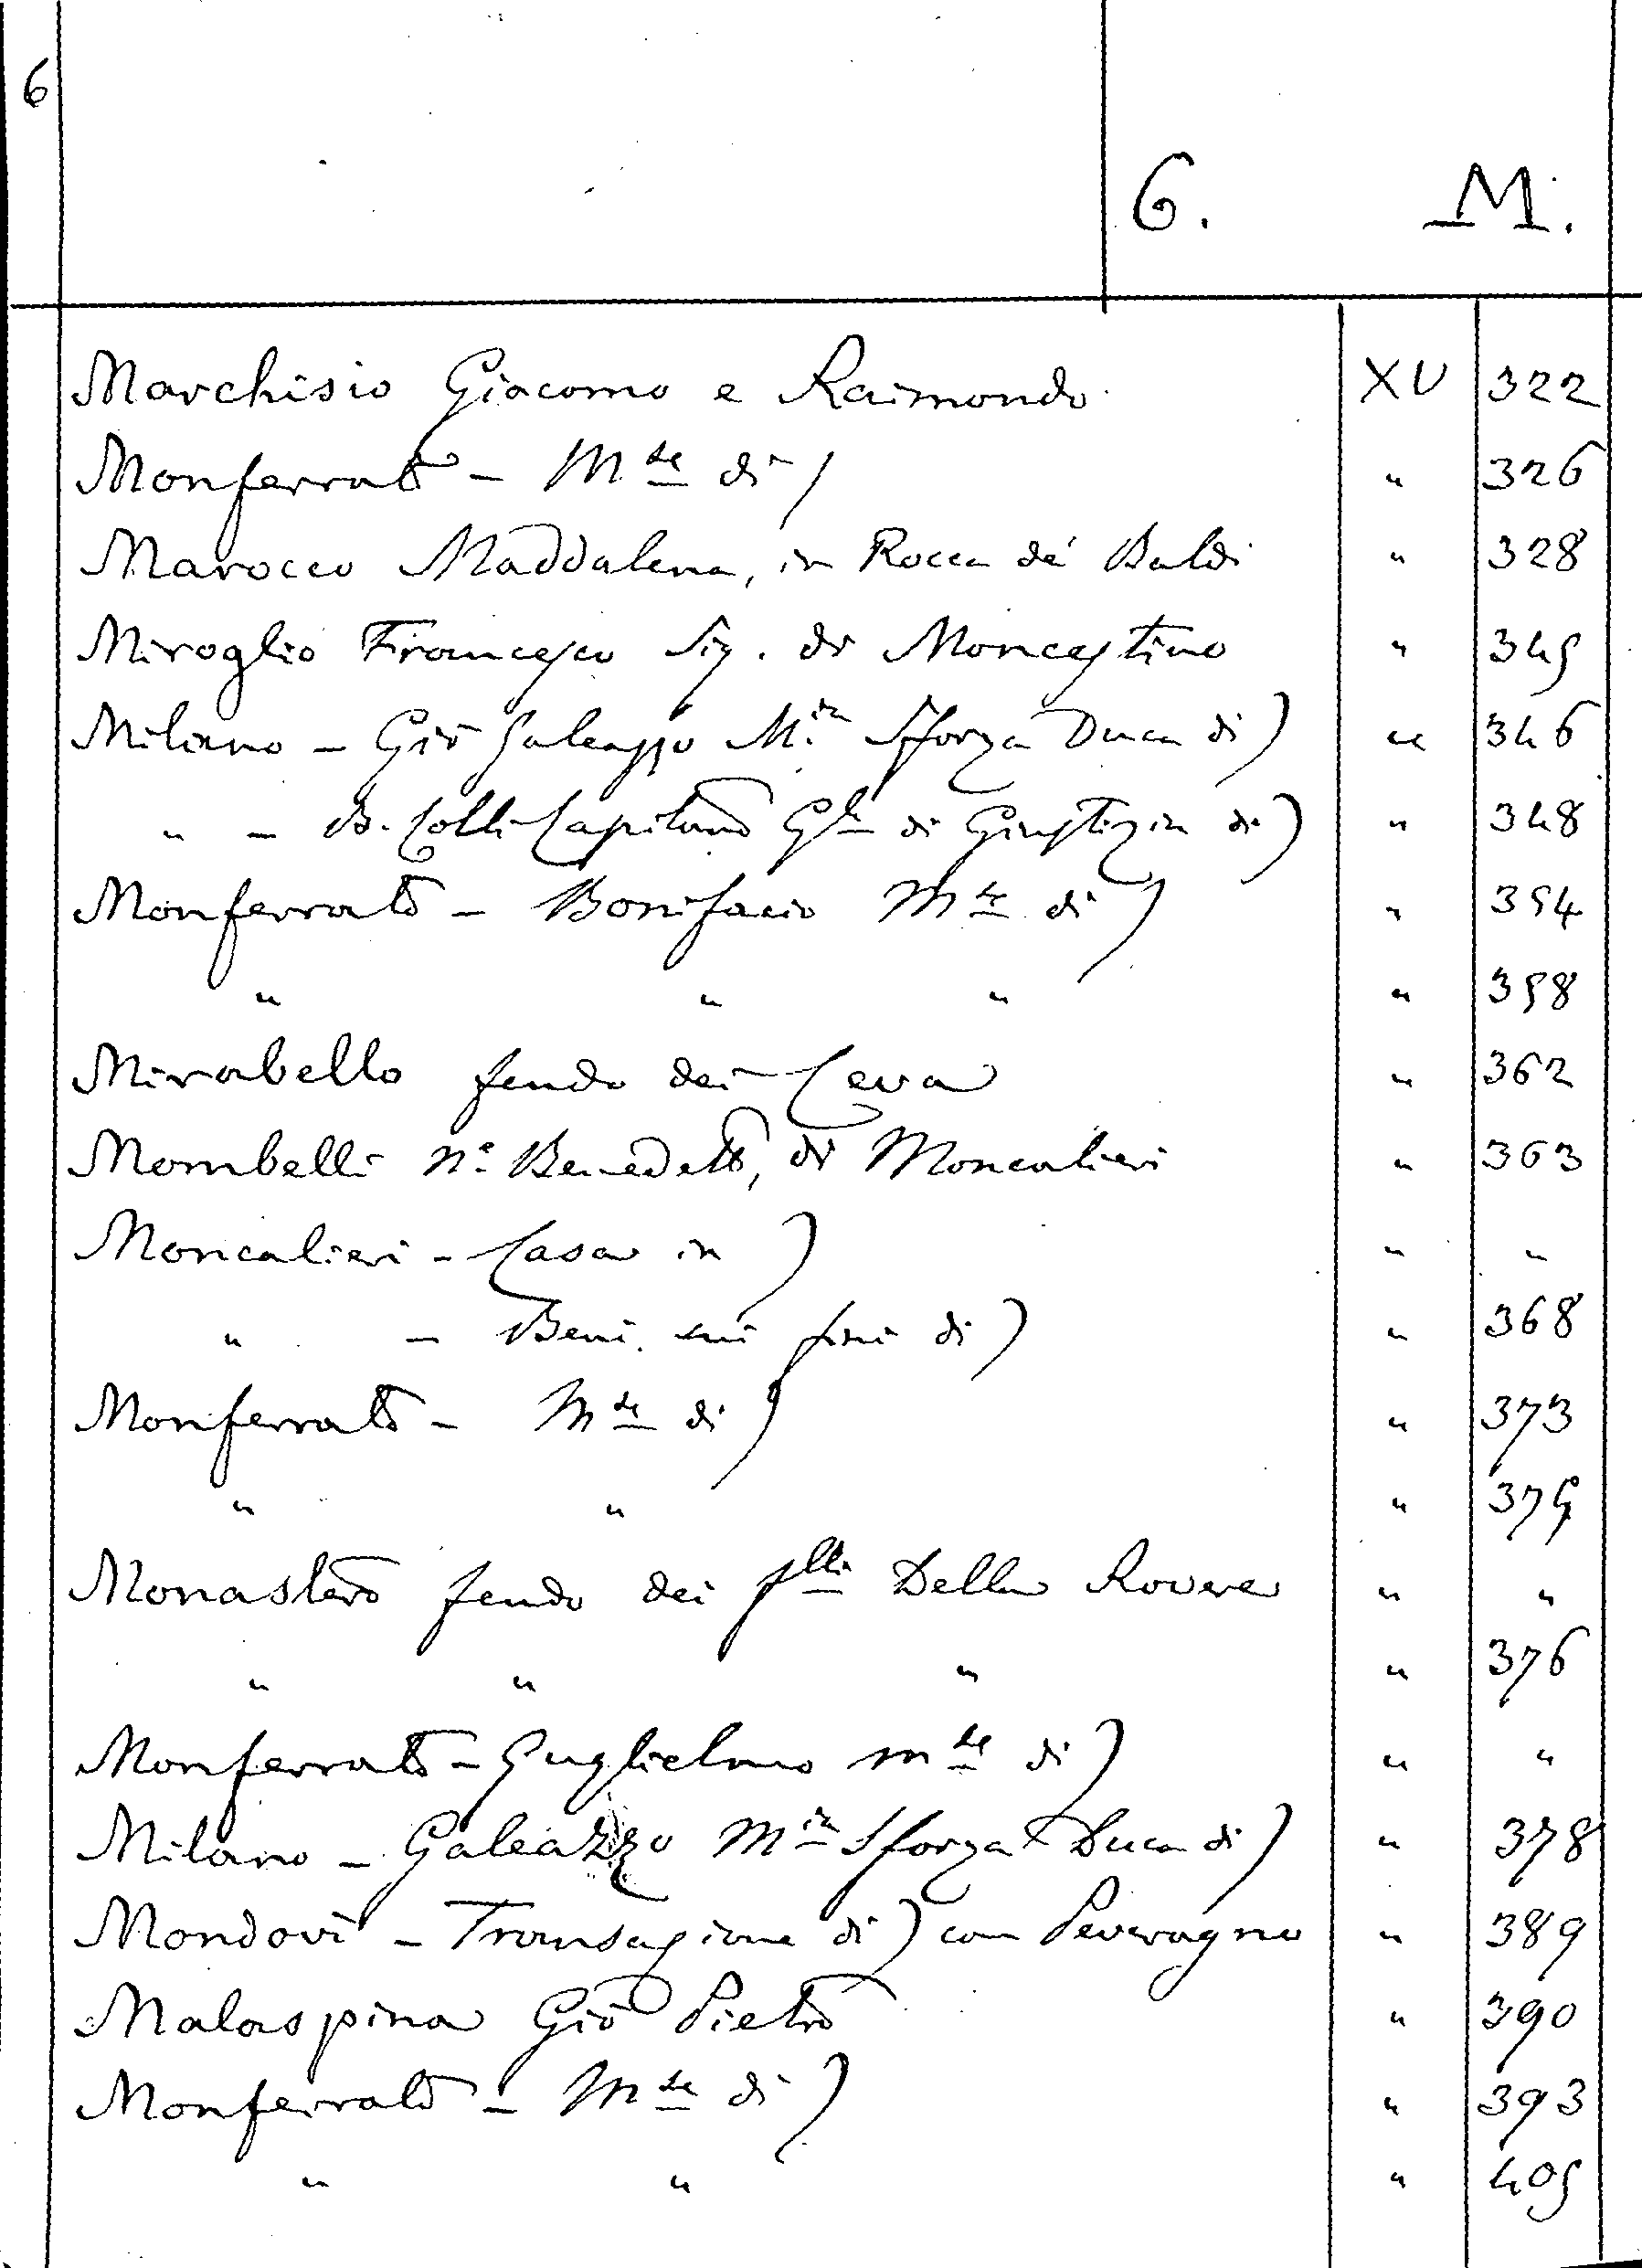 6
6. M.
Marchisio Giacomo e Raimondo XV 322
Monferrato - Mse di) " 326
Marocco Maddalena, in Rocca de' Baldi " 328
Miroglio Francesco Sig. di Moncestino " 345
Milano - Gio Galeazzo Mia Sforza Duca di) " 346
" - B. Colli Capitano Gle di Giustizia di) " 348
Monferrato - Bonifacio Mse di) " 354
" " " " 358
Mirabello feudo dei Ceva " 362
Mombelli No Benedetto, di Moncalieri " 363
Moncalieri - Casa in) " "
" - Beni sui fini di) " 368
Monferrato - Mse di) " 373
" " " 375
Monastero feudo dei flli Della Rovere " "
" " " " 376
Monferrato - Guglielmo mse di) " "
Milano - Galeazzo Mia Sforza Duca di) " 378
Mondovì - Transazione di) con Peveragno " 389
Malaspina Gio Pietro " 390
Monferrato - Mse di) " 393
" " " 405